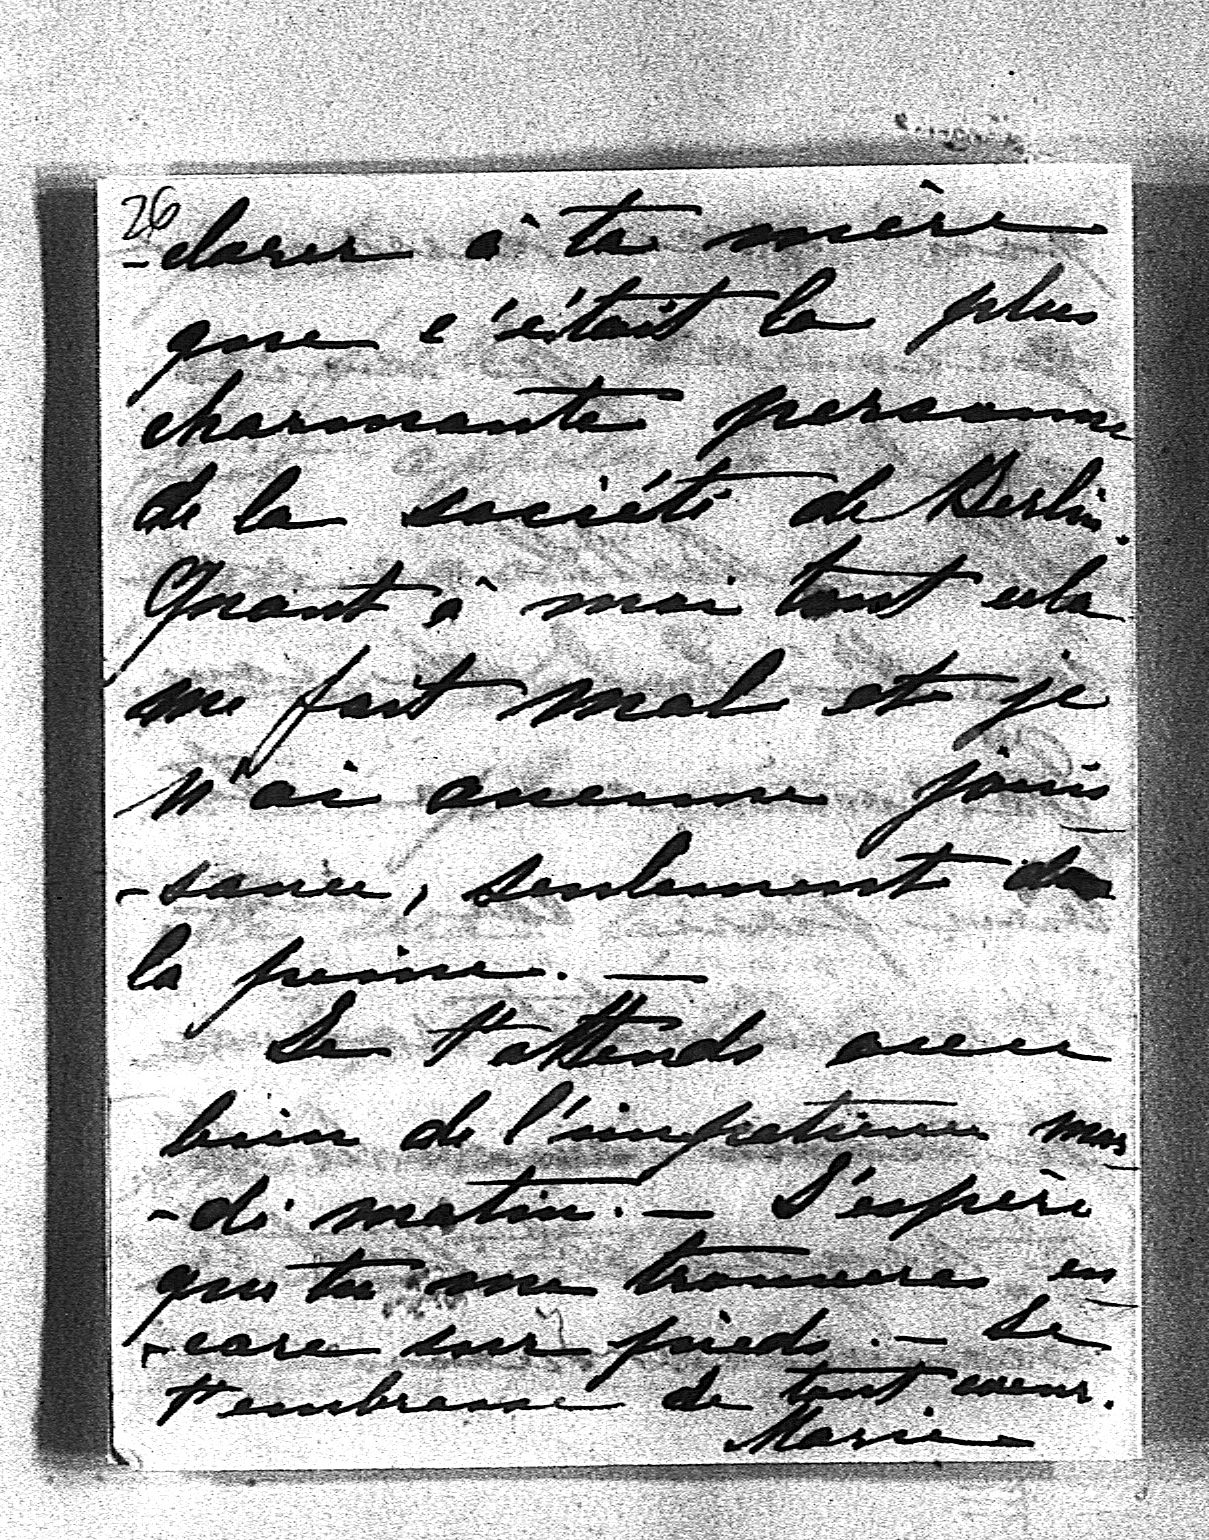 26
-clarer à ta mère
que c'était la plus
charmante personne
de la société de Berlin.
Quant à moi tout cela
me fait mal et je
n'ai aucune jouis
-sance, seulement de
la peine. —
Je t'attends avec
bien de l'impatience mar
-di matin. — J'espère
que tu me trouveras en
-core sur pieds. — Je
t'embrasse de tout coeur.
Marie